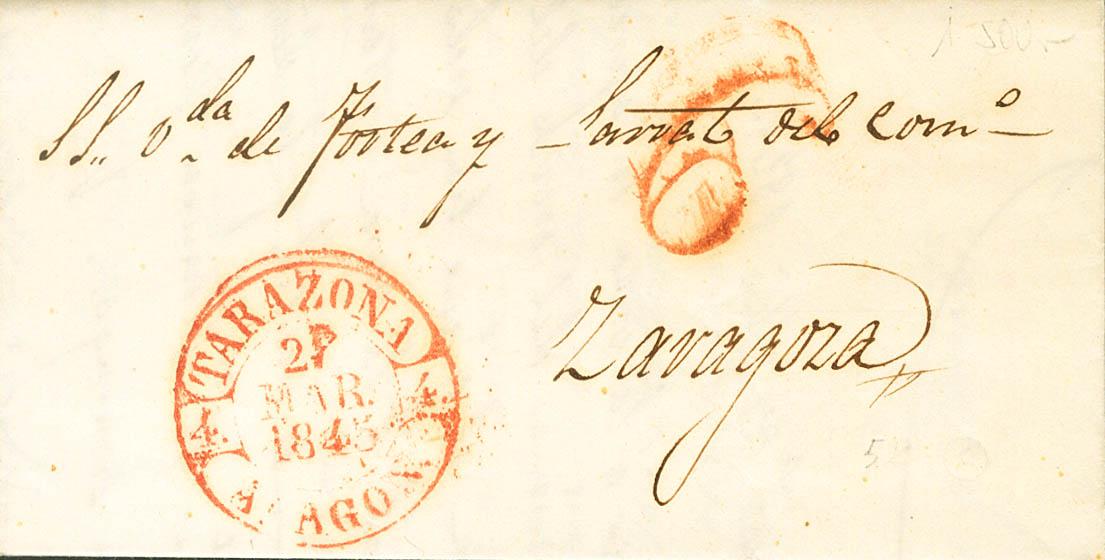 1 500.-
SS. v.da de Fortea y - Sarrat del Com.o -
Zaragoza
TARAZONA
4 4
MAR.
1845
AGON